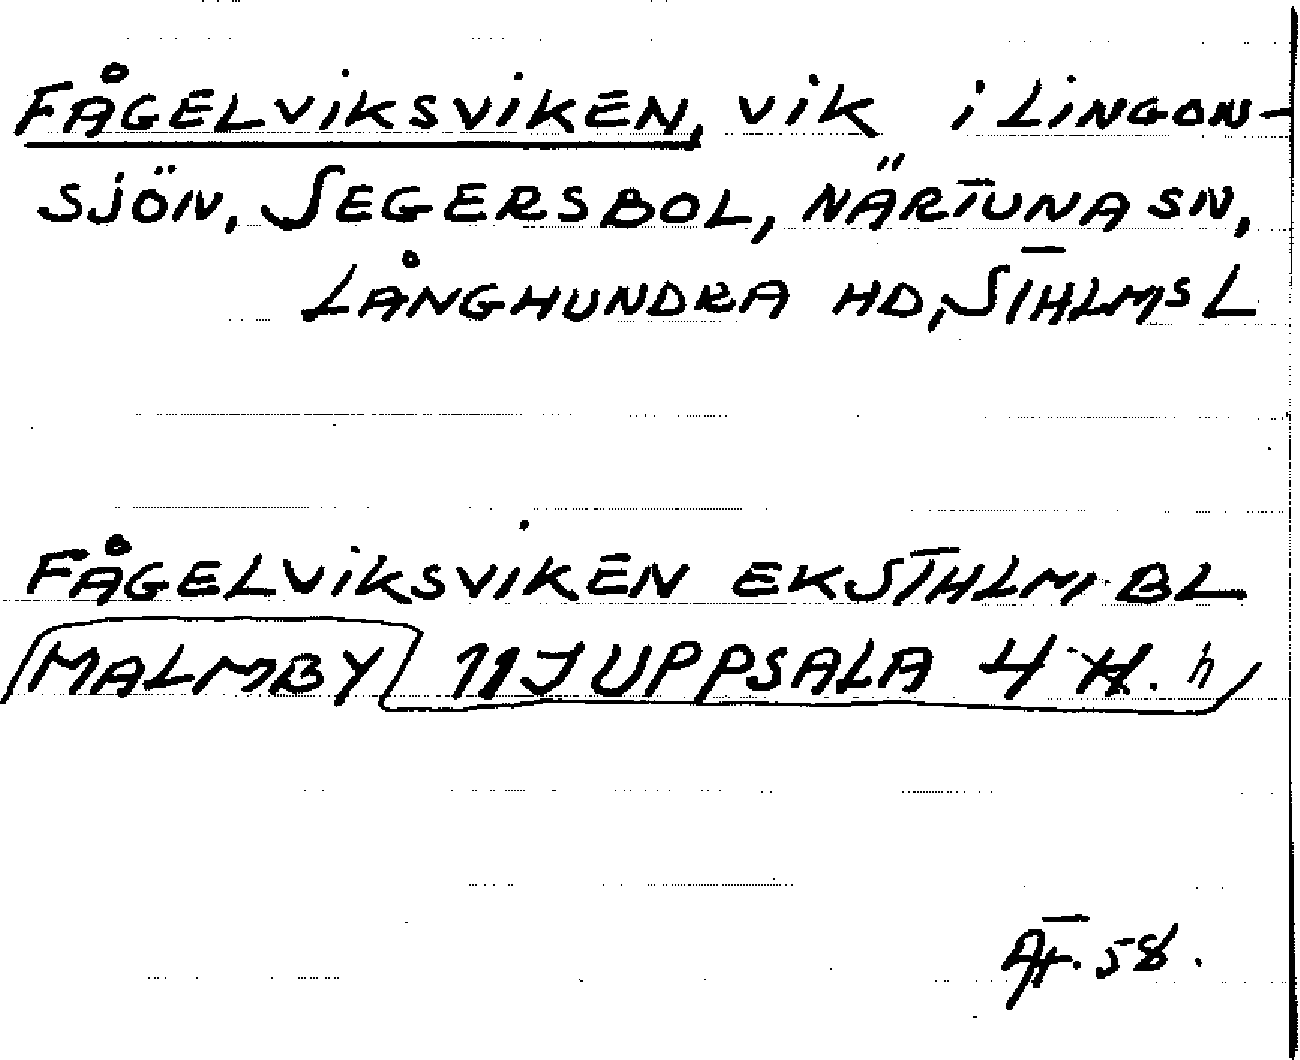 FÅGELVIKSVIKEN, VIK I LINGON-
SJÖN, SEGERSBOL, NÄRTUNA SN,
LÅNGHUNDRA HD, STHLMS L
FÅGELVIKSVIKEN EKSTHLM BL
MALMBY 11J UPPSALA 4
58.